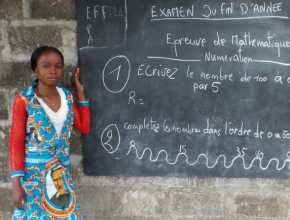 EFFE
A
EXAMEN DU FIN D'ANNEE
Epreuve de Mathématique
Numération
1 Ecrivez le nombre de 100 à
par 5
R =
2 completez le nombre dans l'ordre de 0 à 50
15 35 4